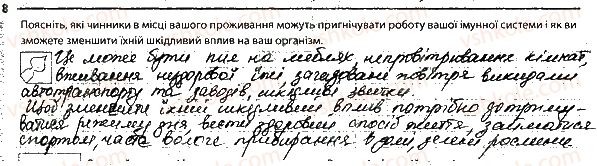 8
Поясніть, які чинники в місці вашого проживання можуть пригнічувати роботу вашої імунної системи і як ви
зможете зменшити їхній шкідливий вплив на ваш організм.
Це може бути пил на меблях, непровітрювання кімнат,
вживання нездорової їжі, загазоване повітря викидами
автотранспорту та заводів, шкідливі звички.
Щоб зменшити їхній шкідливий вплив потрібно дотриму-
ватися режиму дня, вести здоровий спосіб життя, займатися
спортом, часта вологе прибирання в домі, зелені рослини